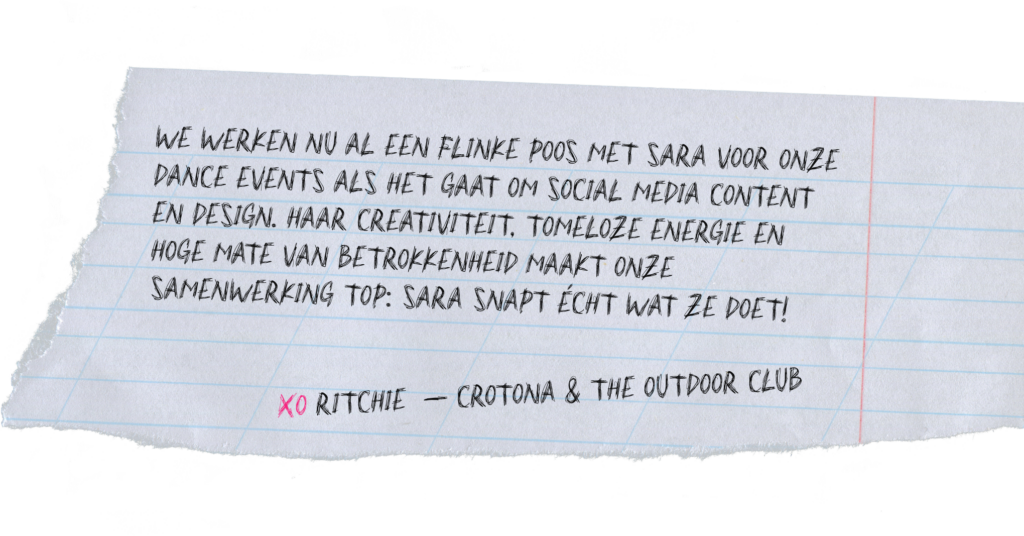 WE WERKEN NU AL EEN FLINKE POOS MET SARA VOOR ONZE
DANCE EVENTS ALS HET GAAT OM SOCIAL MEDIA CONTENT
EN DESIGN. HAAR CREATIVITEIT. TOMELOZE ENERGIE EN
HOGE MATE VAN BETROKKENHEID MAAKT ONZE
SAMENWERKING TOP: SARA SNAPT ÉCHT WAT ZE DOET!
XO RITCHIE — CROTONA & THE OUTDOOR CLUB